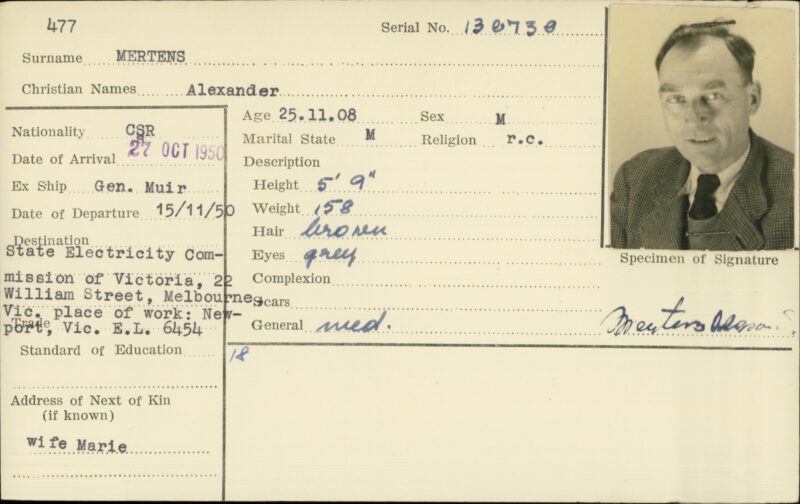 477
Serial No. 130738
Surname MERTENS
Christian Names Alexander
Nationality CSR
Date of Arrival 27 OCT 1950
Ex Ship Gen. Muir
Date of Departure 15/11/50
Destination
State Electricity Com-
mission of Victoria, 22
William Street, Melbourne,
Vic. place of work: New-
port, Vic. E.L. 6454
Trade
Standard of Education
Address of Next of Kin
(if known)
wife Marie
Age 25.11.08 Sex M
Marital State M Religion r.c.
Description
Height 5' 9"
Weight 158
Hair brown
Eyes grey
Complexion
Scars
General med.
18
Specimen of Signature
Mertens